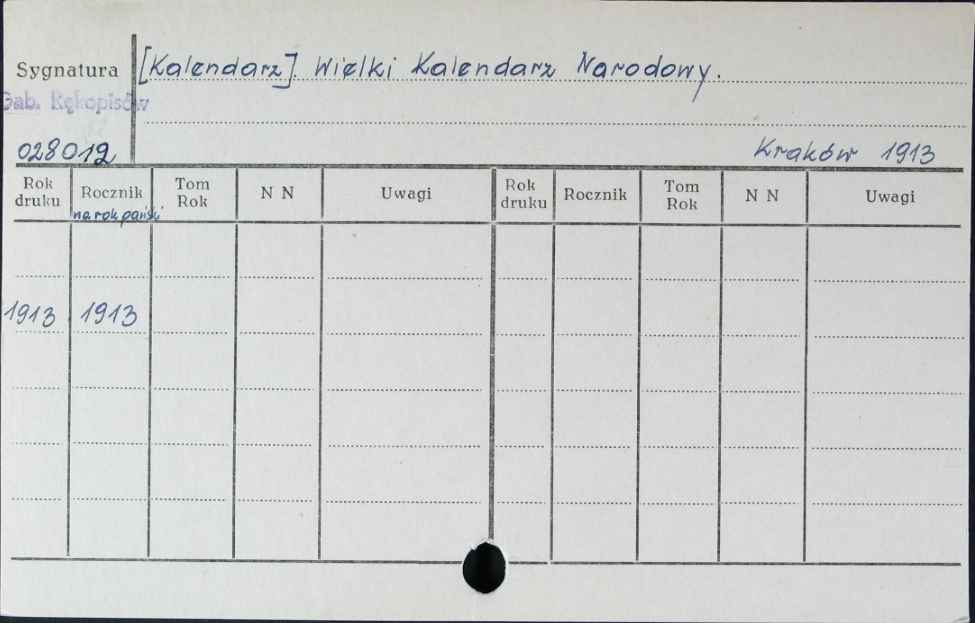 Sygnatura [Kalendarz]. Wielki Kalendarz Narodowy.
Gab. Rękopisów
028012 Kraków 1913
Rok druku Rocznik Tom Rok N N Uwagi Rok druku Rocznik Tom Rok N N Uwagi
na rok pański
1913 1913